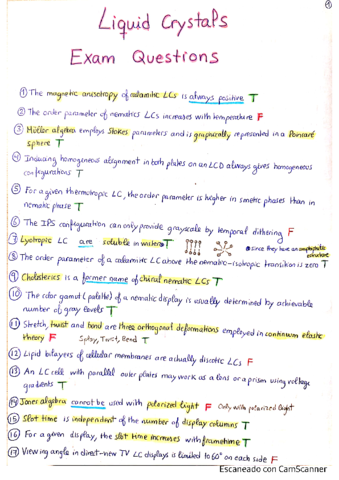 Liquid Crystals
Exam Questions
① The magnetic anisotropy of calamitic LCs is always positive T
② The order parameter of nematics LCs increases with temperature F
③ Müller algebra employs Stokes parameters and is graphically represented in a Poincaré
sphere T
④ Inducing homogeneous alignment in both plates on an LCD always gives homogeneous
configurations T
⑤ For a given thermotropic LC, the order parameter is higher in smetic phases than in
nematic phase T
⑥ The IPS configuration can only provide grayscale by temporal dithering F
⑦ Lyotropic LC are soluble in water T since they have an amphiphilic
structure
⑧ The order parameter of a calamitic LC above the nematic-isotropic transition is zero T
⑨ Cholesterics is a former name of chiral nematic LCs T
⑩ The color gamut (palette) of a nematic display is usually determined by achievable
number of gray levels T
⑪ Stretch, twist and bend are three orthogonal deformations employed in continuum elastic
theory F Splay, Twist, Bend T
⑫ Lipid bilayers of cellular membranes are actually discotic LCs F
⑬ An LC cell with parallel outer plates may work as a lens or a prism using voltage
gradients T
⑭ Jones algebra cannot be used with polarized light F Only with polarized light
⑮ Slot time is independent of the number of display columns T
⑯ For a given display, the slot time increases with frametime T
⑰ Viewing angle in direct-view TV LC displays is limited to 60° on each side F
Escaneado con CamScanner